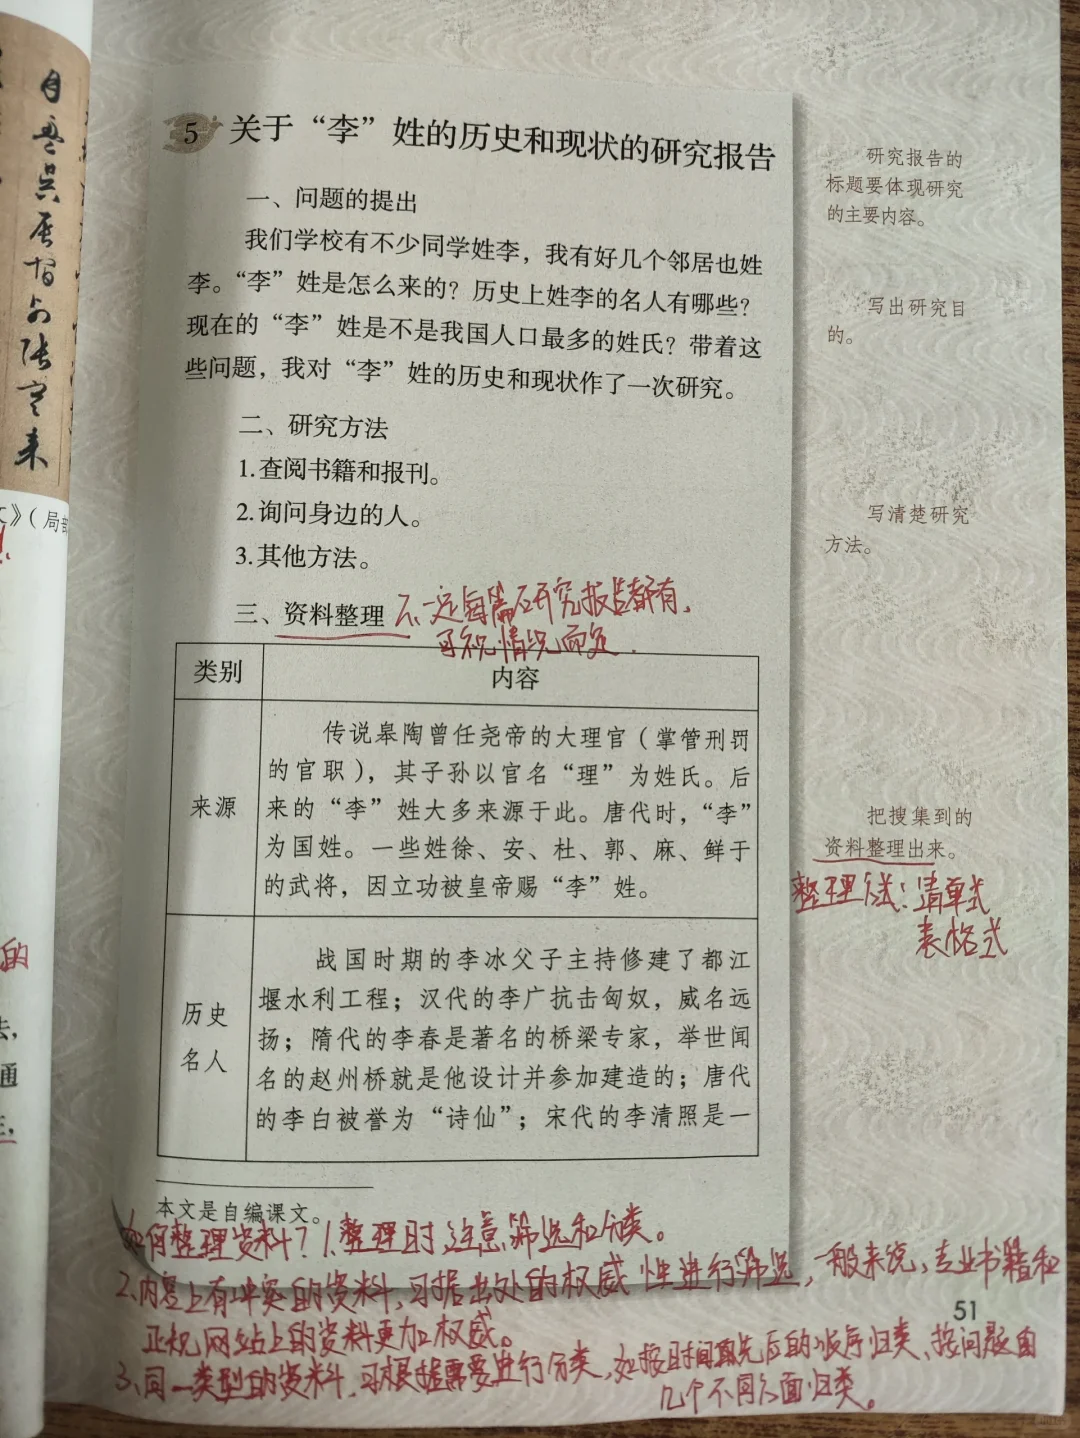 5 关于“李”姓的历史和现状的研究报告
一、问题的提出
我们学校有不少同学姓李，我有好几个邻居也姓
李。“李”姓是怎么来的？历史上姓李的名人有哪些？
现在的“李”姓是不是我国人口最多的姓氏？带着这
些问题，我对“李”姓的历史和现状作了一次研究。
二、研究方法
1.查阅书籍和报刊。
2.询问身边的人。
3.其他方法。
三、资料整理
不一定每篇研究报告都有，
可视情况而定.
类别
内容
来源
传说皋陶曾任尧帝的大理官（掌管刑罚
的官职），其子孙以官名“理”为姓氏。后
来的“李”姓大多来源于此。唐代时，“李”
为国姓。一些姓徐、安、杜、郭、麻、鲜于
的武将，因立功被皇帝赐“李”姓。
历史
名人
战国时期的李冰父子主持修建了都江
堰水利工程；汉代的李广抗击匈奴，威名远
扬；隋代的李春是著名的桥梁专家，举世闻
名的赵州桥就是他设计并参加建造的；唐代
的李白被誉为“诗仙”；宋代的李清照是一
本文是自编课文。
研究报告的
标题要体现研究
的主要内容。
写出研究目
的。
写清楚研究
方法。
把搜集到的
资料整理出来。
整理方式：清单式
表格式
如何整理资料？1、整理时注意筛选和分类。
2、内容上有冲突的资料，可据出处的权威性进行筛选，一般来说，专业书籍和
正规网站上的资料更加权威。
3、同一类型的资料，可根据需要进行分类，如按时间先后的顺序归类、按问题的
几个不同方面归类。
51
文》（局部
的
法，
通